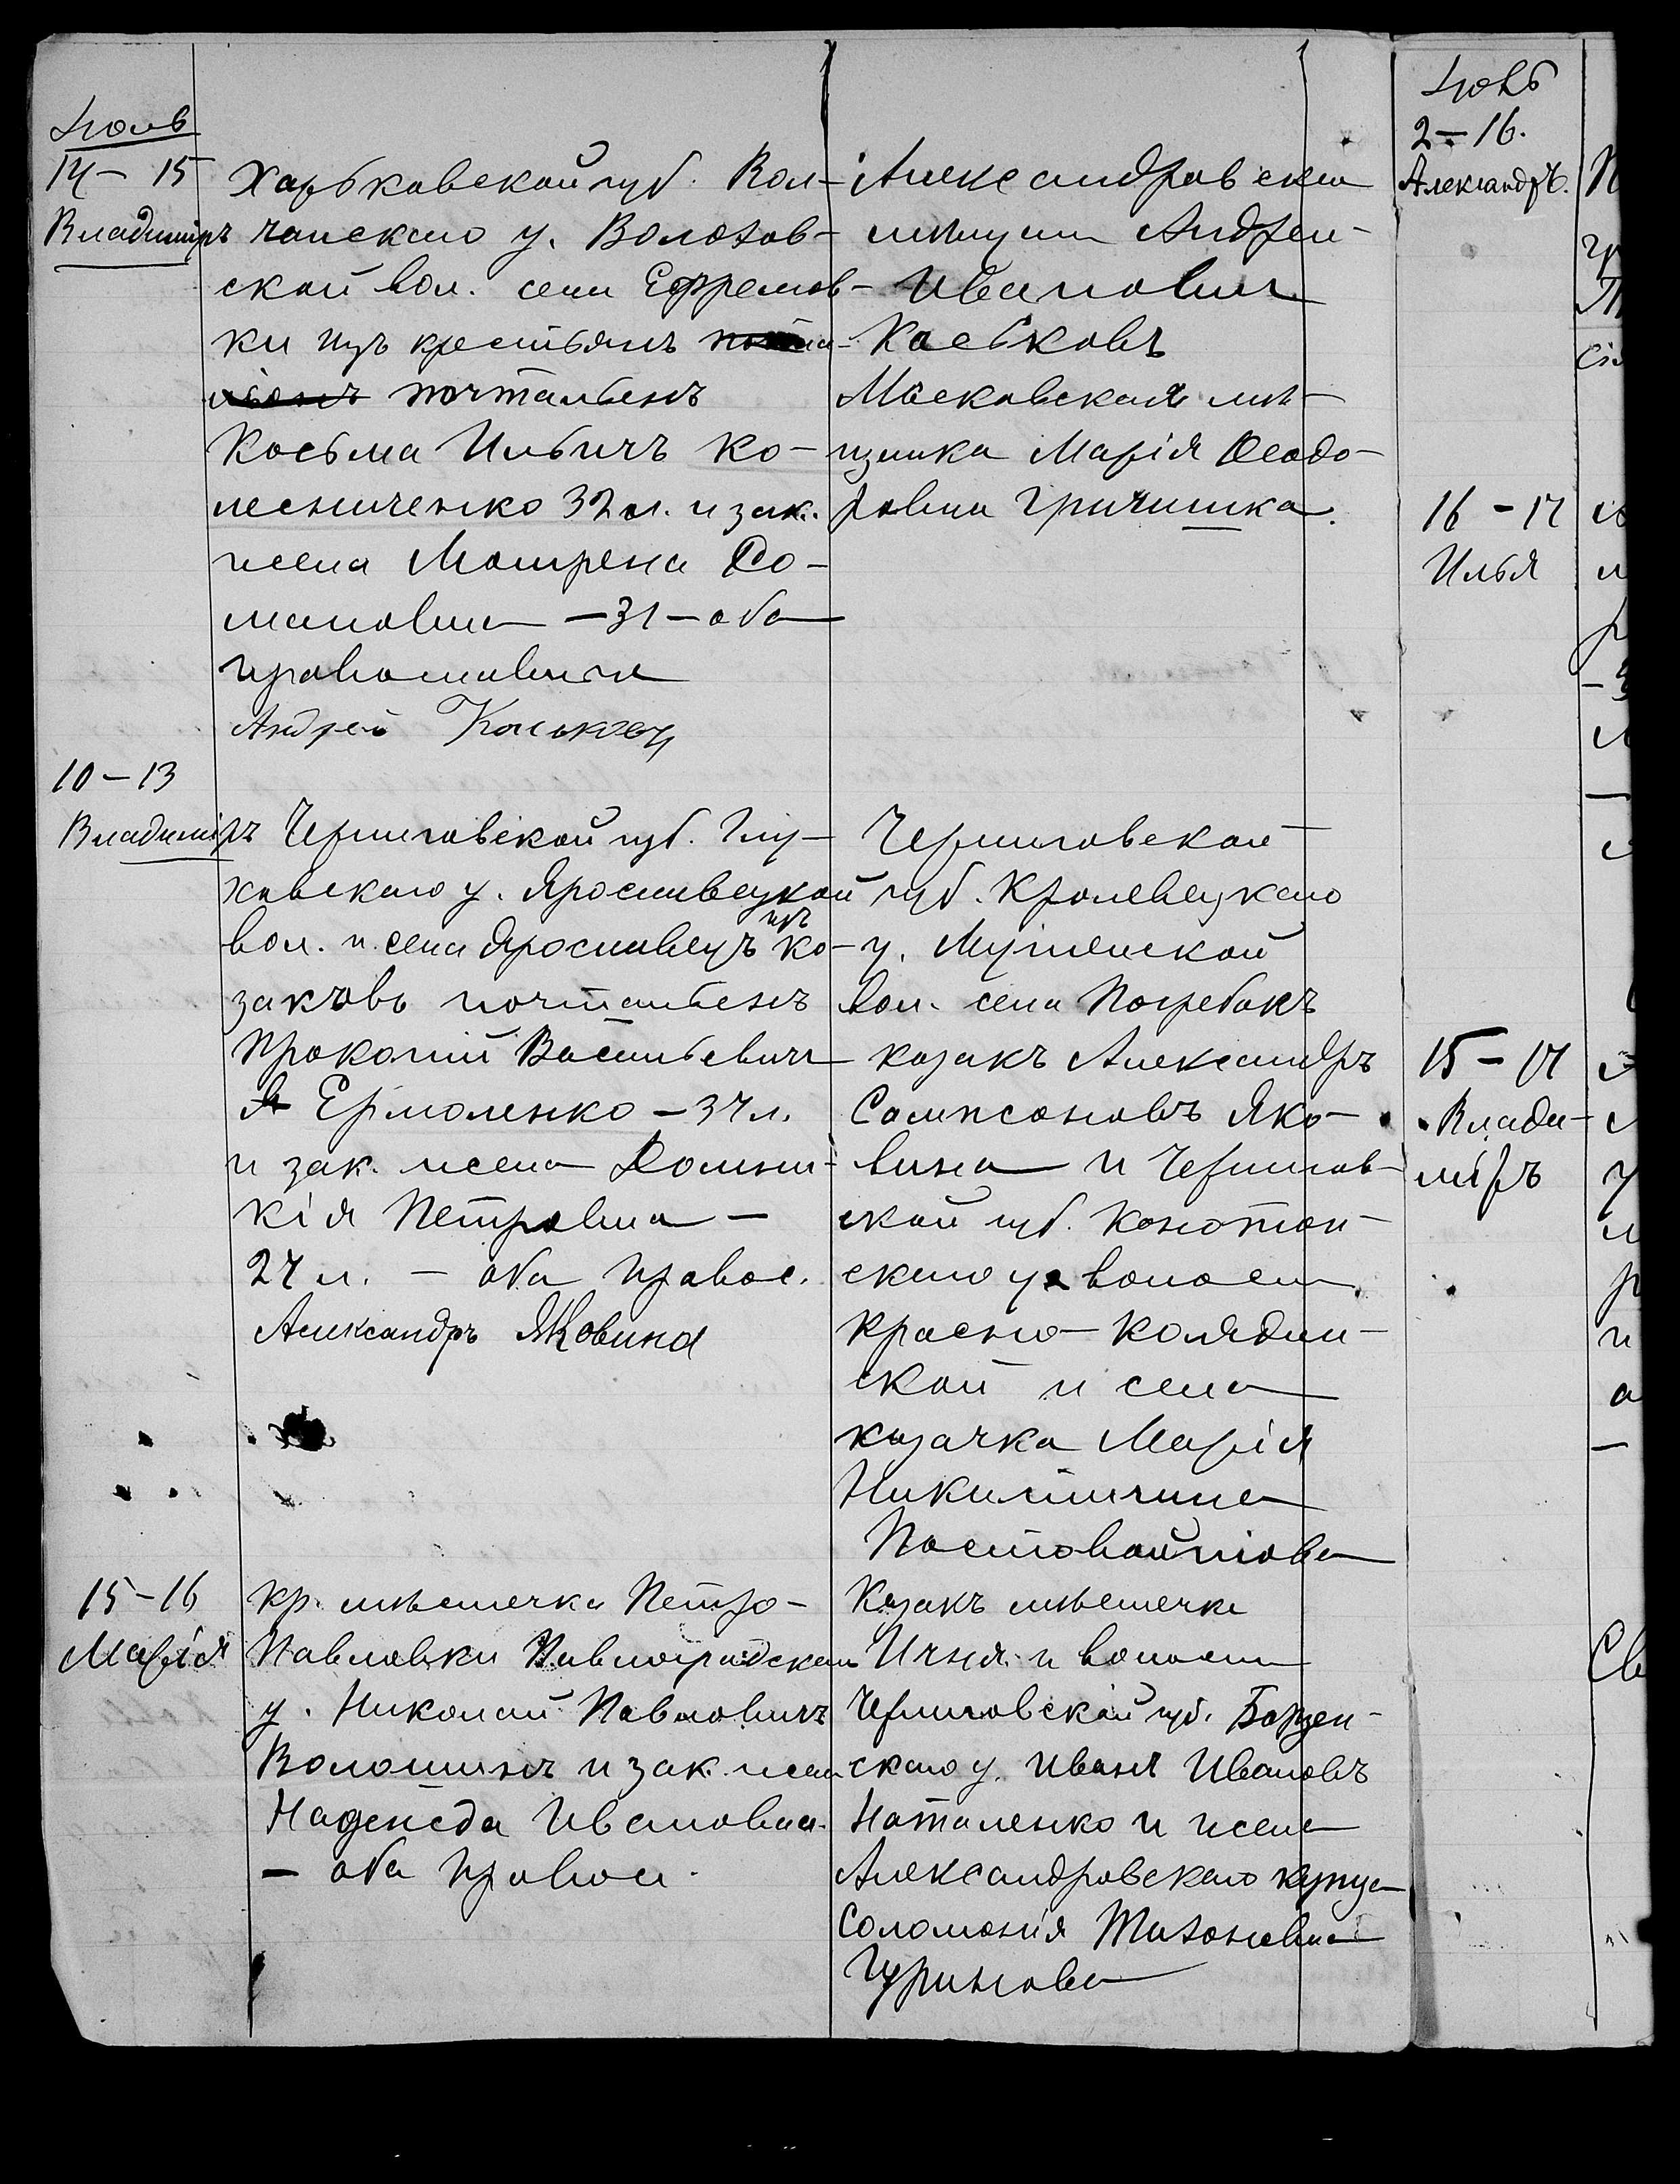 Іюль
14 – 15
Владиміръ
Харьковской губ. Вол-
чанскаго у. Волохов-
ской вол. села Ефремов-
ки изъ крестьянъ
почтальенъ
Косьма Ильичъ Ко-
лесниченко 32 л. и зак.
жена Мотрена Ро-
мановна – 31 – оба
православные
Андрей Коськовъ
Александровскій
мѣщанинъ Андрей
Ивановичъ
Коськовъ
Московская мѣ-
щанка Марія Ѳеодо-
ровна Гричишка.
10 – 13
Владиміръ
Черниговской губ. Глу-
ховскаго у. Ярославецкой
вол. и села Ярославецъ изъ ко-
заковъ почтальенъ
Прокопій Васильевичъ
Ермоленко – 34 л.
и зак. жена Домни-
кія Петровна –
24 л. – оба правос.
Александръ Яковина
Черниговской
губ. Кролевецкаго
у. Мутенской
вол. села Погребокъ
козакъ Александръ
Сампсоновъ Яко-
вина и Чернигов-
ской губ. Конотоп-
скаго у. волости
Красно-Колядин-
ской и села
козачка Марія
Никитична
Постовойтова
15 – 16
Марія
Кр. мѣстечка Петро-
Павловки Павлоградскаго
у. Николай Павловичъ
Волошинъ и зак. жена
Надежда Ивановна
– оба правос.
Козакъ мѣстечка
Ичня и волости
Черниговской губ. Борзен-
скаго у. Иванъ Ивановъ
Наталенко и жена
Александровскаго купца
Соломонія Тихоновна
Гуринова
Іюль
2 – 16.
Александръ.
16 – 17
Илья
15 – 17
Влади-
міръ